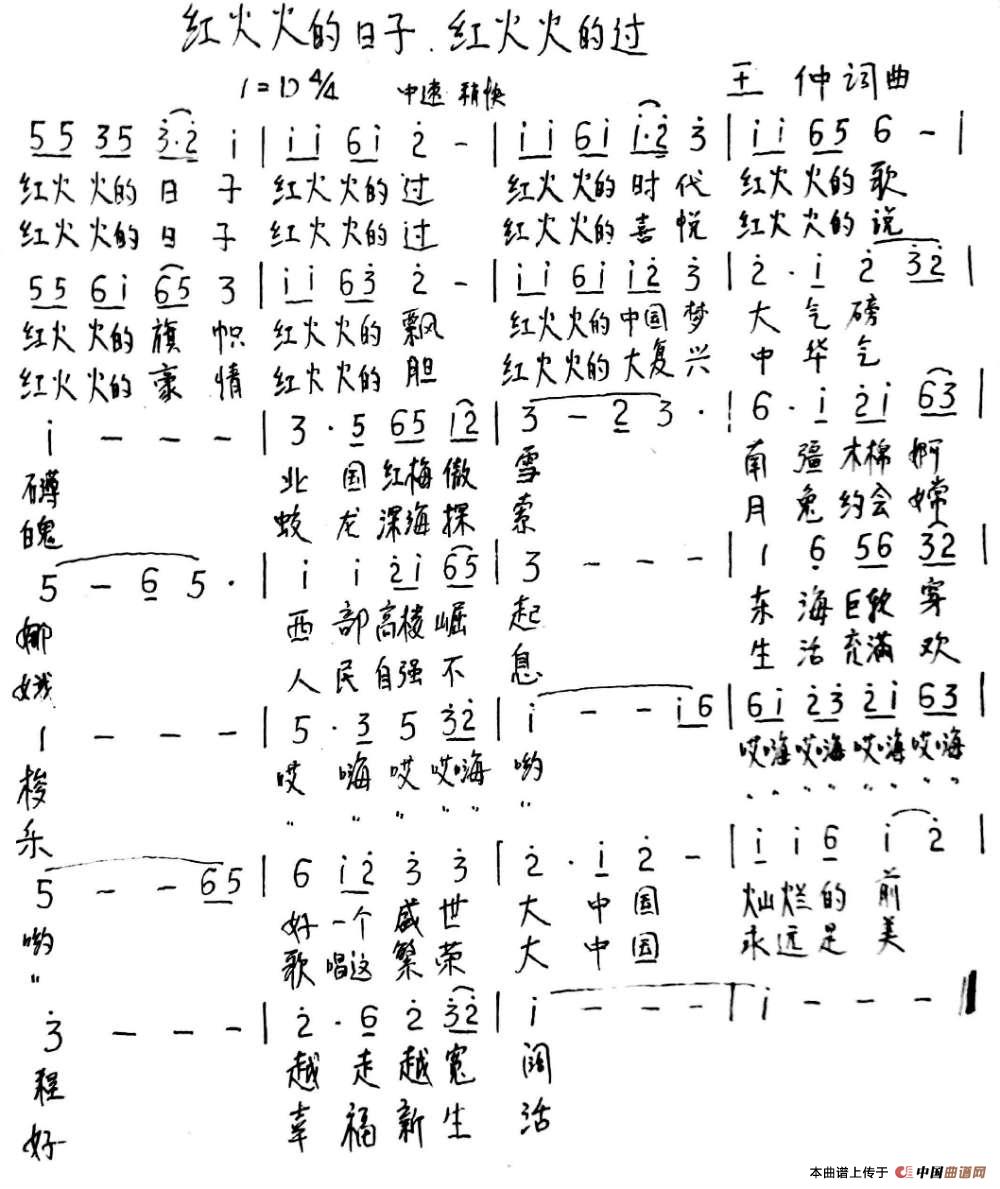 红火火的日子.红火火的过
1=D 4/4 中速 稍快 王 仲 词曲
5 5 3 5 3̇·2̇ i | i i 6 i 2̇ - | i i 6 i i·2̇ 3̇ | i i 6 5 6 - |
红火火的日子 红火火的过 红火火的时代 红火火的歌
红火火的日子 红火火的过 红火火的喜悦 红火火的说
5 5 6 i 6 5 3 | i i 6 3̇ 2̇ - | i i 6 i i 2̇ 3̇ | 2̇ · i 2̇ 3̇ 2̇ |
红火火的旗帜 红火火的飘 红火火的中国梦 大气磅
红火火的豪情 红火火的胆 红火火的大复兴 中华气
i - - - | 3 · 5 6 5 i 2̇ | 3 - 2 3 · | 6 · i 2̇ i 6 3 |
礴 北国红梅傲 雪 南疆木棉婀
魄 蛟龙深海探 索 月兔约会嫦
5 - 6 5 · | i i 2̇ i 6 5 | 3 - - - | 1 6̣ 5 6 3̇ 2̇ |
娜 西部高楼崛 起 东海巨龙穿
娥 人民自强不 息 生活充满欢
1 - - - | 5 · 3 5 3̇ 2̇ | i - - i 6 | 6 i 2̇ 3̇ 2̇ i 6 3 |
梭 哎嗨哎哎嗨 哟 哎嗨哎嗨哎嗨哎嗨
乐 " " " " " " " " " " " " " "
5 - - 6 5 | 6 i 2̇ 3̇ 3̇ | 2̇ · i 2̇ - | i i 6 i 2̇ |
哟 好一个盛世 大中国 灿烂的前
" 歌唱这繁荣 大中国 永远是美
3̇ - - - | 2̇ · 6 2̇ 3̇ 2̇ | i - - - | i - - - ‖
程 越走越宽 阔
好 幸福新生 活
本曲谱上传于 中国曲谱网